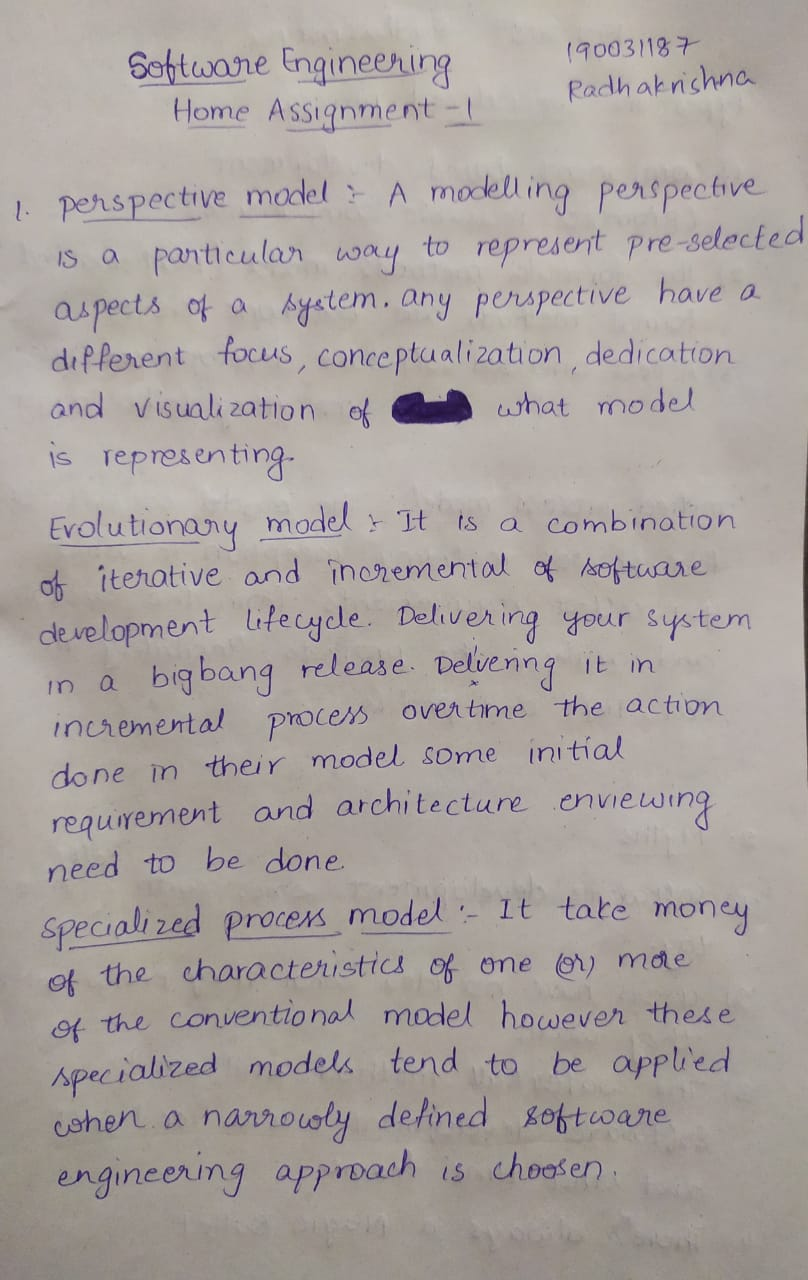 Software Engineering
Home Assignment - 1
190031187
Radhakrishna
1. perspective model :- A modelling perspective
is a particular way to represent pre-selected
aspects of a system. any perspective have a
different focus, conceptualization, dedication
and visualization of what model
is representing.
Evolutionary model :- It is a combination
of iterative and incremental of software
development lifecycle. Delivering your system
in a bigbang release. Delivering it in
incremental process overtime the action
done in their model some initial
requirement and architecture enviewing
need to be done.
specialized process model :- It take money
of the characteristics of one (or) more
of the conventional model however these
specialized models tend to be applied
when a narrowly defined software
engineering approach is choosen.